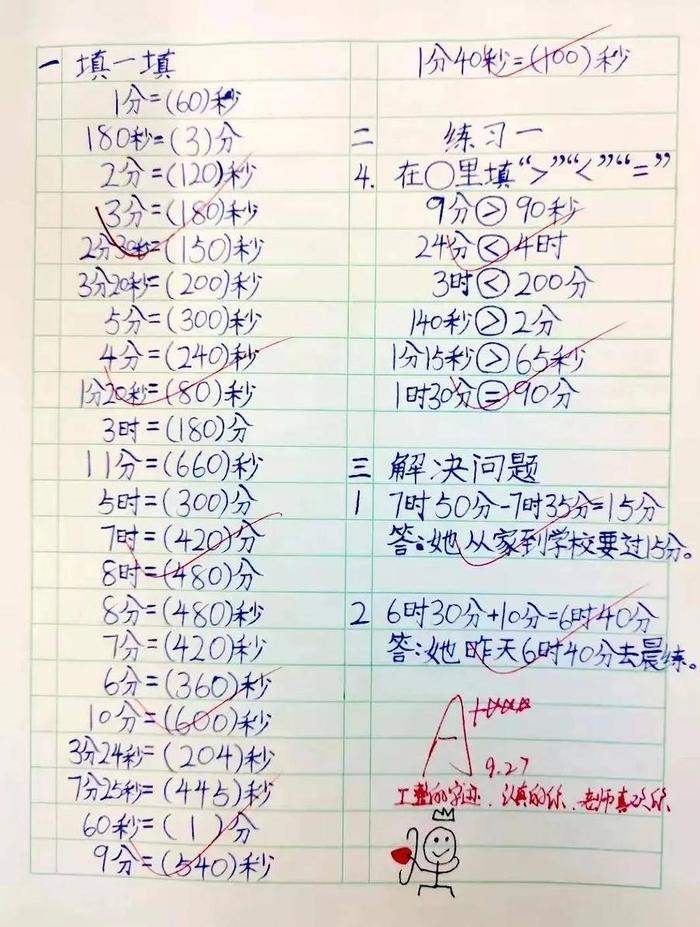 一 填一填
1分=(60)秒
180秒=(3)分
2分=(120)秒
3分=(180)秒
2分30秒=(150)秒
3分20秒=(200)秒
5分=(300)秒
4分=(240)秒
1分20秒=(80)秒
3时=(180)分
11分=(660)秒
5时=(300)分
7时=(420)分
8时=(480)分
8分=(480)秒
7分=(420)秒
6分=(360)秒
10分=(600)秒
3分24秒=(204)秒
7分25秒=(445)秒
60秒=(1)分
9分=(540)秒
1分40秒=(100)秒
二 练习一
4. 在○里填“>”“<”“=”
9分>90秒
24分<4时
3时<200分
140秒>2分
1分15秒>65秒
1时30分=90分
三 解决问题
1 7时50分-7时35分=15分
答:她从家到学校要过15分。
2 6时30分+10分=6时40分
答:她昨天6时40分去晨练。
A+
9.27
工整的字迹,认真的你,老师真欢你